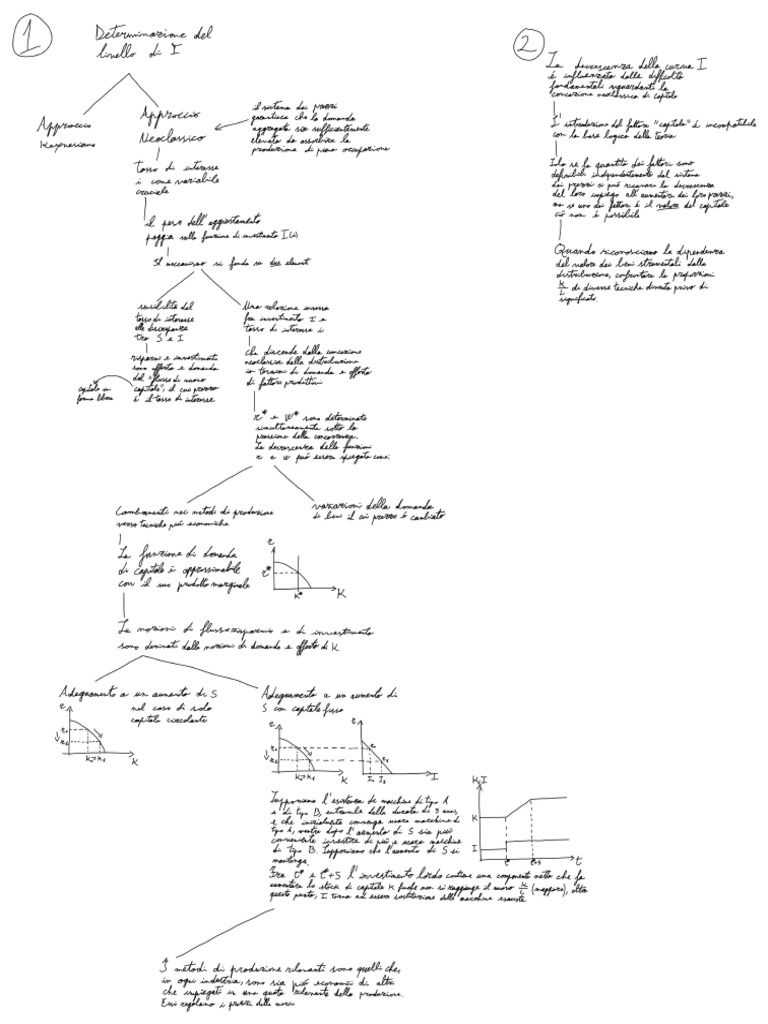 1
Determinazione del
livello di I
Approccio
Keynesiano
Approccio
Neoclassico
il sistema dei prezzi
garantisce che la domanda
aggregata sia sufficientemente
elevata da assorbire la
produzione di piena occupazione
tasso di interesse
i come variabile
cruciale
il peso dell'aggiustamento
poggia sulla funzione di investimento I(i)
Il meccanismo si fonda su due elementi
sensibilità del
tasso di interesse
alle discrepanze
tra S e I
risparmi e investimenti
sono offerta e domanda
del "flusso di nuovo
capitale", il cui prezzo
è il tasso di interesse
capitale in
forma libera
Una relazione inversa
fra investimento I e
tasso di interesse i
che discende dalla concezione
neoclassica della distribuzione
in termini di domanda e offerta
di fattori produttivi
r* e w* sono determinati
simultaneamente sotto la
pressione della concorrenza.
La decrescenza delle funzioni
r e w può essere spiegata con:
Cambiamenti nei metodi di produzione
verso tecniche più economiche
variazioni della domanda
di beni il cui prezzo è cambiato
La funzione di domanda
di capitale è approssimabile
con il suo prodotto marginale
r
r*
K*
K
Le nozioni di flusso risparmio e di investimento
sono derivati dalle nozioni di domanda e offerta di K
Adeguamento a un aumento di S
nel caso di solo
capitale circolante
r
K
Adeguamento a un aumento di
S con capitale fisso
r
K
r
I
Supponiamo l'esistenza di macchine di tipo A
e di tipo B, entrambe della durata di 5 anni,
e che inizialmente convenga usare macchine di
tipo A, mentre dopo l'aumento di S sia più
conveniente investire di più e usare macchine
di tipo B. Supponiamo che l'aumento di S si
mantenga.
Tra t* e t*+5 l'investimento lordo contiene una componente netta che fa
aumentare lo stock di capitale K finché non si raggiunge il nuovo K/L (maggiore), oltre
questo punto, I torna ad essere sostituzione delle macchine esauste
K,I
K
I
t
I metodi di produzione rilevanti sono quelli che,
in ogni industria, sono sia più economici di altri
che impiegati in una quota rilevante della produzione.
Essi regolano i prezzi delle merci
2
La decrescenza della curva I
è influenzata dalle difficoltà
fondamentali riguardanti la
concezione neoclassica di capitale
L'introduzione del fattore "capitale" è incompatibile
con la base logica della teoria
Solo se le quantità dei fattori sono
definibili indipendentemente dal sistema
dei prezzi si può ricavare la decrescenza
del loro impiego all'aumentare dei loro prezzi,
ma se uno dei fattori è il valore del capitale
ciò non è possibile
Quando riconosciamo la dipendenza
del valore dei beni strumentali dalla
distribuzione, confrontare le proporzioni
K/L di diverse tecniche diventa privo di
significato.